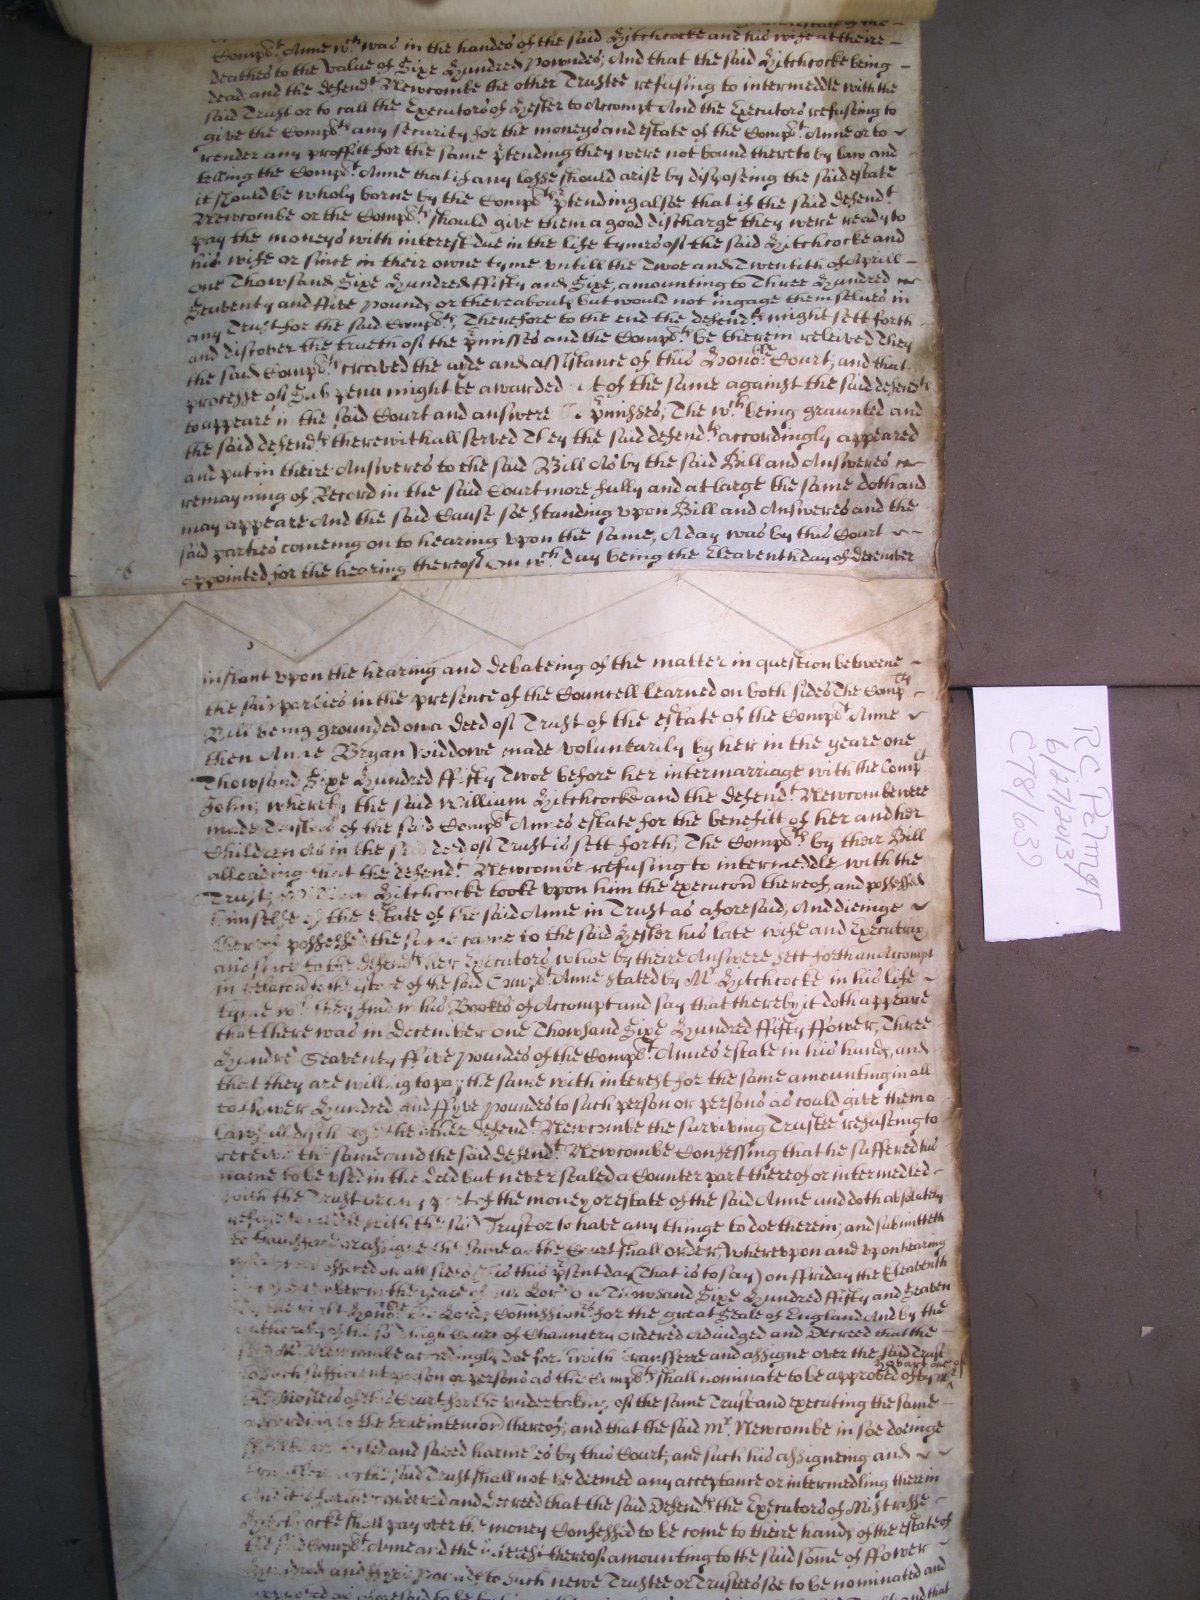 Comp.t Anne w.ch was in the handes of the said Hitchcocke and his wife at theire
deathes to the value of Sixe Hundred Powndes; And that the said Hitchcocke being
dead and the defend.t Newcombe the other Trustee refusing to intermeddle with the
said Trust or to call the Executors of Hester to Accompt And the Executors refusing to
give the Comp.ts any security for the moneys and estate of the Comp.t Anne or to
render any proffitt for the same p̃tending they were not bound thereto by law and
telling the Comp.t Anne that if any losse should arise by disposeing the said estate
it should be wholy borne by the Comp.ts p̃tending alsoe that if the said defend.t
Newcombe or the Comp.ts should give them a good discharge they were ready to
pay the moneys with interest due in the life tymes of the said Hitchcocke and
his wife or since in their owne tyme untill the Twoe and Twentith of Aprill
one Thowsand Sixe Hundred ffifty and Sixe, amounting to Three Hundred
Seaventy and ffive pounds or thereabouts but would not ingage themselves in
any Trust for the said Comp.ts, Therefore to the end the defend.ts might sett forth
and discover the trueth of the p̃misses and the Comp.ts be therein releived They
the said Comp.ts craved the ayde and assistance of this Hono.ble Court, and that
processe of Subpena might be awarded of the same against the said defend.ts
to appeare in the said Court and answere p̃misses, The w.ch being graunted and
the said defend.ts therewithall served They the said defend.ts accordingly appeared
and put in theire Answeres to the said Bill As by the said Bill and Answeres
remayning of Record in the said Court more fully and at large the same doth and
may appeare And the said Cause soe standing upon Bill and Answeres and the
said parties comeing on to hearing upon the same, A day was by this Court
appointed for the hearing thereof On w.ch day being the Eleaventh day of December
instant upon the hearing and debateing of the matter in question betweene
the said parties in the presence of the Councell learned on both sides The Comp.ts
Bill being grounded on a deed of Trust of the estate of the Comp.t Anne
then Anne Bryan Widdowe made voluntarily by her in the yeare one
Thowsand Sixe Hundred ffifty Twoe before her intermarriage with the Comp.lt
John, whereby the said William Hitchcocke and the defend.t Newcombe were
made Trustees of the said Comp.t Annes estate for the benefitt of her and her
Children As in the said deed of Trust is sett forth, The Comp.ts by their Bill
alleadging that the defend.t Newcombe refusing to intermeddle with the
Trust, William Hitchcocke tooke upon him the execucon thereof, and possessed
himselfe of the estate of the said Anne in Trust as aforesaid, And dieinge
thereof possessed the same came to the said Hester his late wife and Executrix,
and since to the defend.ts her Executors whoe by theire Answere sett forth an Accompt
in relacon to the estate of the said Comp.t Anne stated by M.r Hitchcocke in his life
tyme w.ch they find in his Bookes of Accompt and say that thereby it doth appeare
that there was in December one Thowsand Sixe Hundred ffifty ffower, Three
Hundred Seaventy ffive poundes of the Comp.t Annes estate in his hands, and
that they are willing to pay the same with interest for the same amounting in all
to ffower Hundred and ffyve poundes to such person or persons as could give them a
lawfull discharge the other defend.t Newcombe the surviving Trustee refuseing to
receive the same and the said defend.t Newcombe Confessing that he suffered his
name to be used in the deed but never sealed a Counter part thereof or intermedled
with the Trust or any part of the money or estate of the said Anne and doth absolutely
refuse to with the said Trust or to have any thinge to doe therein, and submitteth
to transferre or assigne the same as the Court shall order, Whereupon and upon hearing
offered on all sides this p̃sent day (That is to say) on ffriday the Eleaventh
in the yeare of our Lord One Thowsand Sixe Hundred ffifty and Seaven
the right Hono.ble the Lords Commission.rs for the great Seale of England And by the
authority of the said high Court of Chauncery ordered Adiudged and Decreed that the
said M.r Newcombe accordingly doe forthwith transferre and assigne over the said Trust
to such sufficient person or persons as the Comp.ts shall nominate to be approved of by M.r
Hobart one of
the Masters of this Court for the undertaking of the same Trust and executing the same
according to the true intencon thereof, and that the said M.r Newcombe in soe doeinge
and saved harmeles by this Court, and such his assigneing and
transferring the said Trust shall not be deemed any acceptance or intermedling therein
And it is further ordered and decreed that the said Defend.ts the Executors of Mistrisse
Hitchcocke shall pay over the money Confessed to be come to theire hands of the estate of
the said Comp.t Anne and the interest thereof amounting to the said some of ffower
Hundred and ffyve pounds to such newe Trustee or Trustees soe to be nominated and
RC Palmer
6/27/2013
C78/639